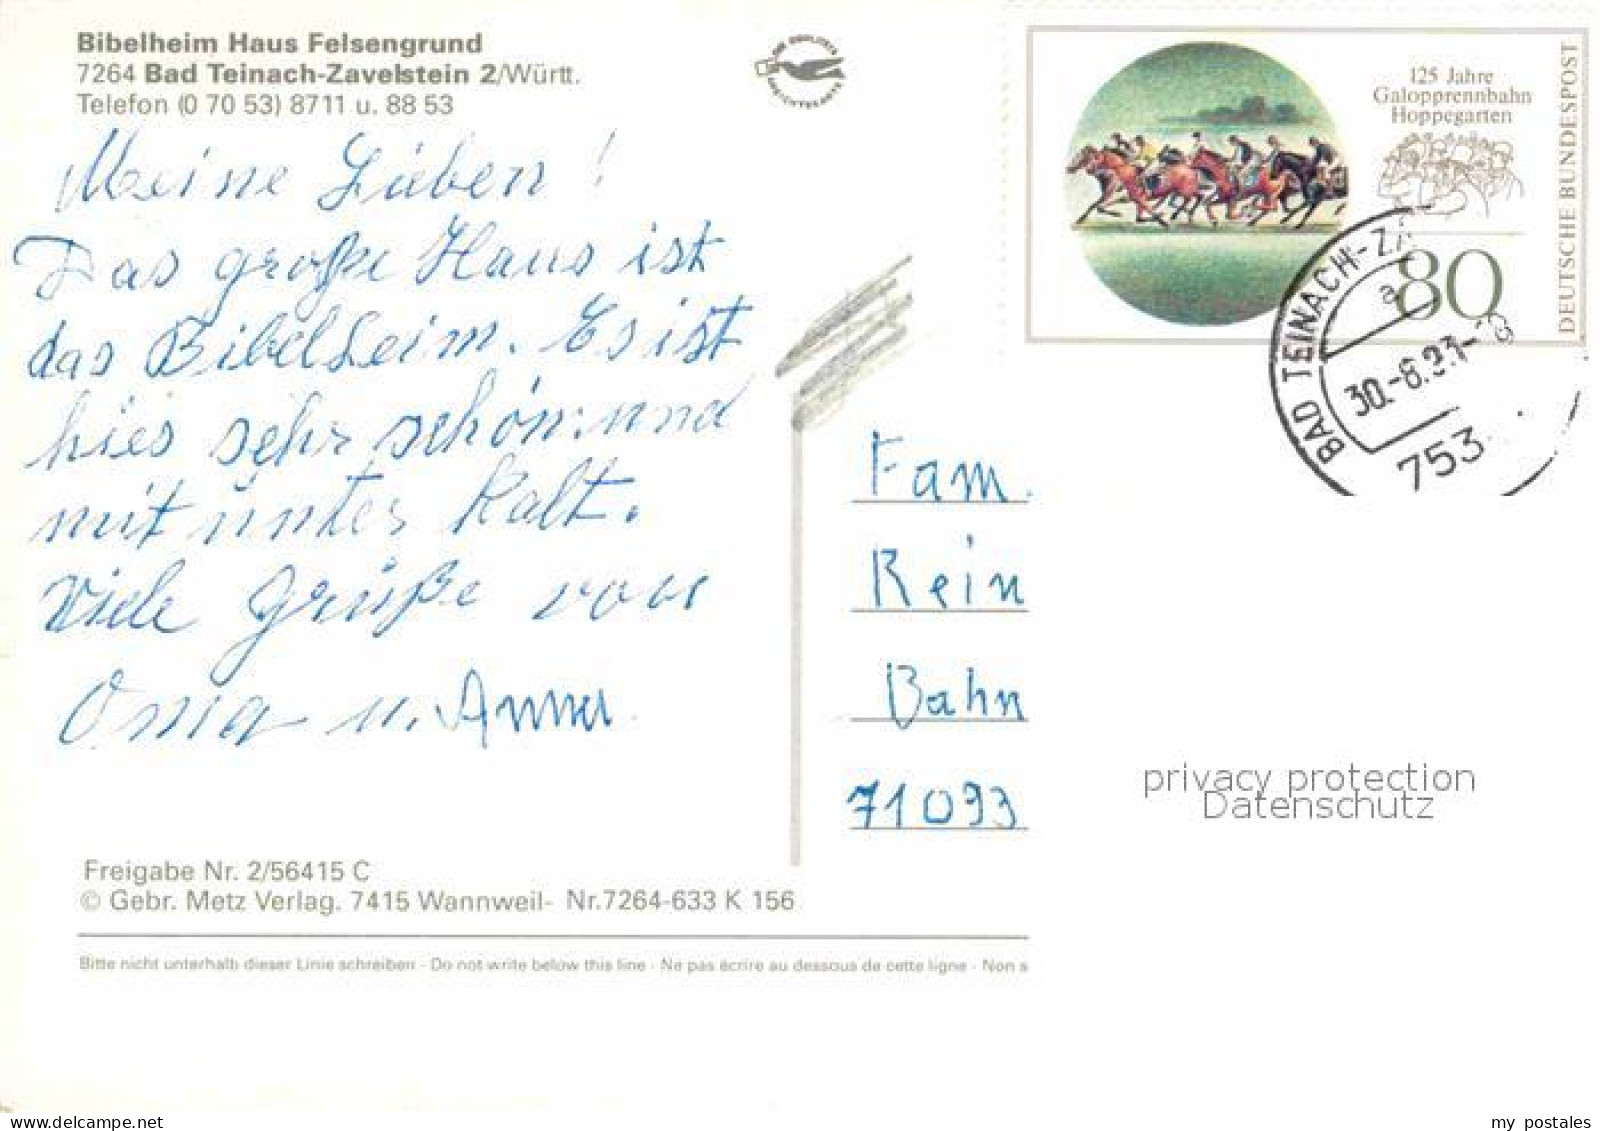 Bibelheim Haus Felsengrund
7264 Bad Teinach-Zavelstein 2/Württ.
Telefon (0 70 53) 8711 u. 88 53
Meine Lieben !
Das große Haus ist
das Bibelheim. Es ist
hier sehr schön. und
mit unter kalt.
Viele Grüße von
Oma u. Anna
125 Jahre
Galopprennbahn
Hoppegarten
80
DEUTSCHE BUNDESPOST
BAD TEINACH-ZA
a
30.-6.93-18
753
Fam.
Rein
Bahn
71093
privacy protection
Datenschutz
Freigabe Nr. 2/56415 C
© Gebr. Metz Verlag. 7415 Wannweil- Nr.7264-633 K 156
Bitte nicht unterhalb dieser Linie schreiben - Do not write below this line - Ne pas écrire au dessous de cette ligne - Non s
www.delcampe.net
my_postales